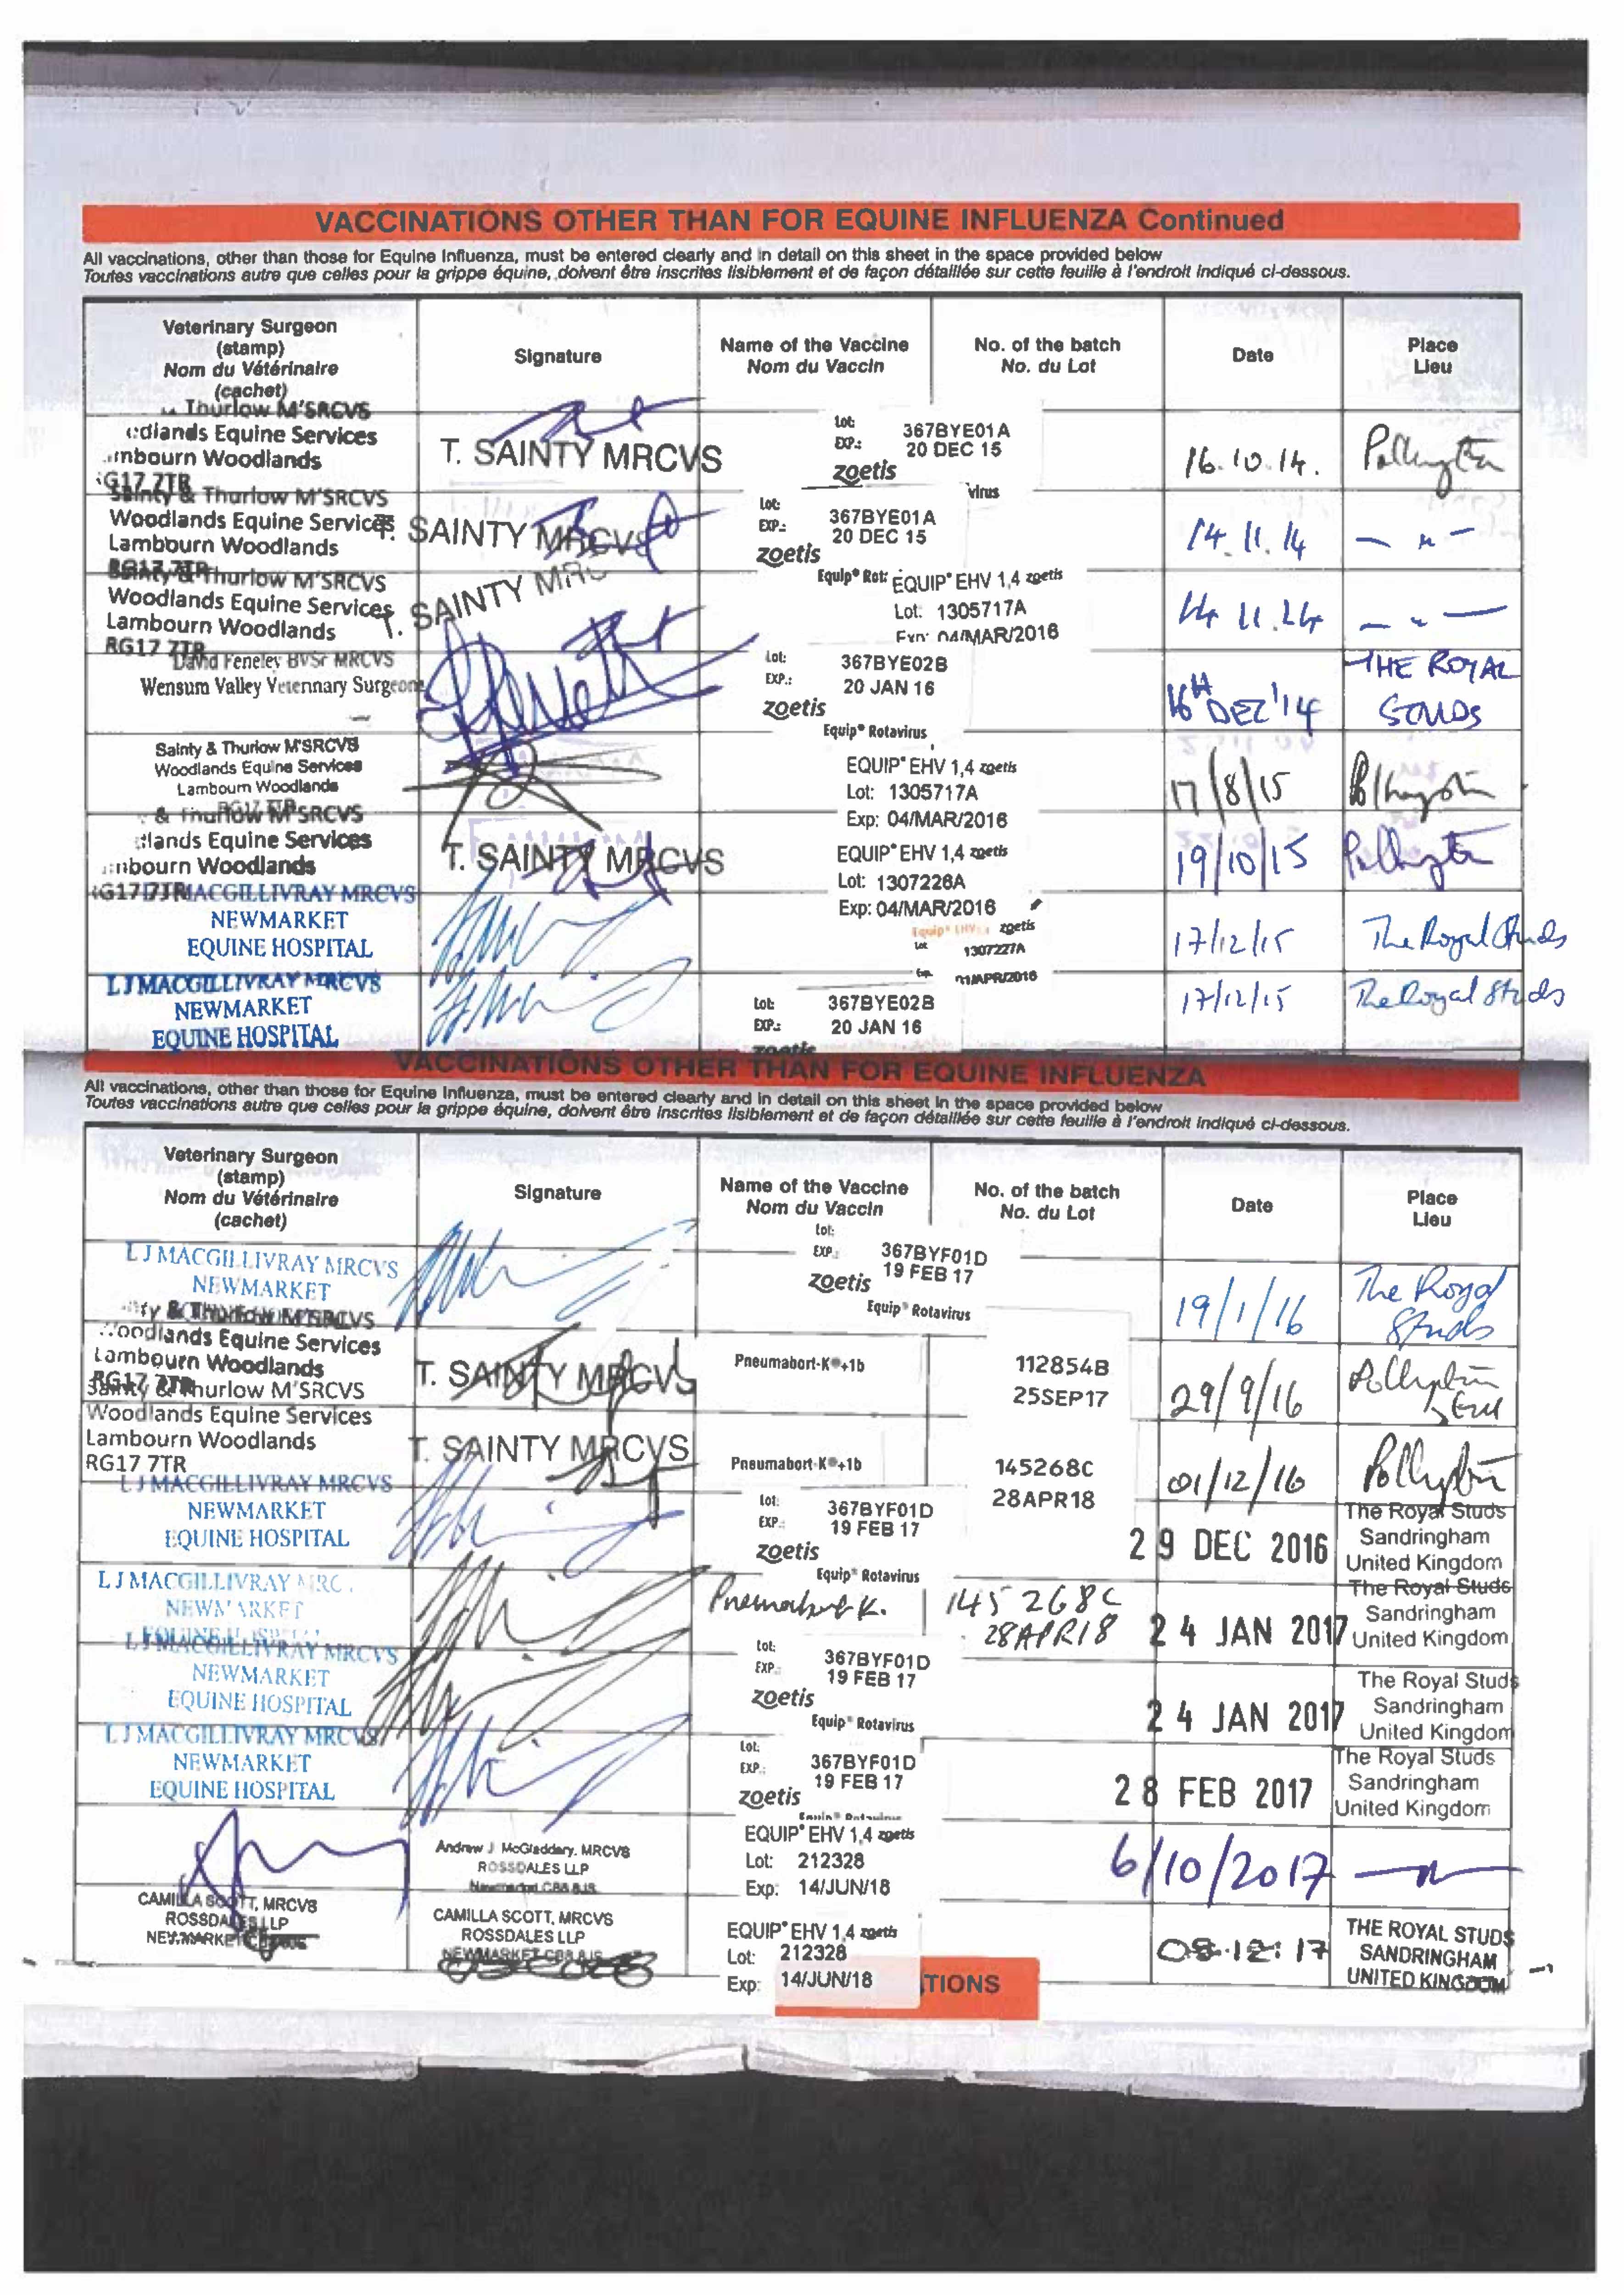 VACCINATIONS OTHER THAN FOR EQUINE INFLUENZA Continued
All vaccinations, other than those for Equine Influenza, must be entered clearly and in detail on this sheet in the space provided below
Toutes vaccinations autre que celles pour la grippe équine, doivent être inscrites lisiblement et de façon détaillée sur cette feuille à l'endroit indiqué ci-dessous.
Veterinary Surgeon
(stamp)
Nom du Vétérinaire
(cachet)
Signature
Name of the Vaccine
Nom du Vaccin
No. of the batch
No. du Lot
Date
Place
Lieu
Thurlow M'SRCVS
edlands Equine Services
mbourn Woodlands
G17 7TR
T. SAINTY MRCVS
Lot: 367BYE01A
EXP.: 20 DEC 15
zoetis
virus
16.10.14.
Pollington
Sainty & Thurlow M'SRCVS
Woodlands Equine Services
Lambourn Woodlands
RG17 7TR
T. SAINTY MRCVS
Lot: 367BYE01A
EXP.: 20 DEC 15
zoetis
14.11.14
— " —
Sainty & Thurlow M'SRCVS
Woodlands Equine Services
Lambourn Woodlands
RG17 7TR
T. SAINTY MRC
Equip® Rot
EQUIP® EHV 1,4 zoetis
Lot: 1305717A
Exp: 04/MAR/2016
14 11.14
— " —
David Feneley BVSc MRCVS
Wensum Valley Veterinary Surgeons
Lot: 367BYE02B
EXP.: 20 JAN 16
zoetis
Equip® Rotavirus
16TH DEZ '14
THE ROYAL
STUDS
Sainty & Thurlow M'SRCVS
Woodlands Equine Services
Lambourn Woodlands
RG17 7TR
EQUIP® EHV 1,4 zoetis
Lot: 1305717A
Exp: 04/MAR/2016
17/8/15
& Thurlow M'SRCVS
dlands Equine Services
mbourn Woodlands
RG17 7TR
T. SAINTY MRCVS
EQUIP® EHV 1,4 zoetis
Lot: 1307226A
Exp: 04/MAR/2016
19/10/15
Pollington
L J MACGILLIVRAY MRCVS
NEWMARKET
EQUINE HOSPITAL
Equip® EHV 1,4 zoetis
Lot 1307227A
Exp. 01/APR/2016
17/12/15
The Royal Studs
L J MACGILLIVRAY MRCVS
NEWMARKET
EQUINE HOSPITAL
Lot: 367BYE02B
EXP.: 20 JAN 16
zoetis
17/12/15
The Royal Studs
VACCINATIONS OTHER THAN FOR EQUINE INFLUENZA
All vaccinations, other than those for Equine Influenza, must be entered clearly and in detail on this sheet in the space provided below
Toutes vaccinations autre que celles pour la grippe équine, doivent être inscrites lisiblement et de façon détaillée sur cette feuille à l'endroit indiqué ci-dessous.
Veterinary Surgeon
(stamp)
Nom du Vétérinaire
(cachet)
Signature
Name of the Vaccine
Nom du Vaccin
No. of the batch
No. du Lot
Date
Place
Lieu
L J MACGILLIVRAY MRCVS
NEWMARKET
Lot:
EXP.: 367BYF01D
19 FEB 17
zoetis
Equip® Rotavirus
19/1/16
The Royal
Studs
ty & Thurlow M'SRCVS
Woodlands Equine Services
Lambourn Woodlands
RG17 7TR
T. SAINTY MRCVS
Pneumabort-K®+1b
112854B
25SEP17
29/9/16
Pollington
Stud
Sainty & Thurlow M'SRCVS
Woodlands Equine Services
Lambourn Woodlands
RG17 7TR
T. SAINTY MRCVS
Pneumabort-K®+1b
145268C
28APR18
01/12/16
Pollington
L J MACGILLIVRAY MRCVS
NEWMARKET
EQUINE HOSPITAL
Lot: 367BYF01D
EXP.: 19 FEB 17
zoetis
Equip® Rotavirus
29 DEC 2016
The Royal Studs
Sandringham
United Kingdom
L J MACGILLIVRAY MRC
NEWMARKET
Pnemabort K.
145268C
28APR18
24 JAN 2017
The Royal Studs
Sandringham
United Kingdom
L J MACGILLIVRAY MRCVS
NEWMARKET
EQUINE HOSPITAL
Lot: 367BYF01D
EXP.: 19 FEB 17
zoetis
Equip® Rotavirus
24 JAN 2017
The Royal Studs
Sandringham
United Kingdom
L J MACGILLIVRAY MRCVS
NEWMARKET
EQUINE HOSPITAL
Lot: 367BYF01D
EXP.: 19 FEB 17
zoetis
Equip® Rotavirus
28 FEB 2017
The Royal Studs
Sandringham
United Kingdom
Andrew J McGladdery, MRCVS
ROSSDALES LLP
Newmarket CB8 8JS
EQUIP® EHV 1,4 zoetis
Lot: 212328
Exp: 14/JUN/18
6/10/2017
— " —
CAMILLA SCOTT, MRCVS
ROSSDALES LLP
NEWMARKET CB8 8JS
CAMILLA SCOTT, MRCVS
ROSSDALES LLP
NEWMARKET CB8 8JS
EQUIP® EHV 1,4 zoetis
Lot: 212328
Exp: 14/JUN/18
08.12.17
THE ROYAL STUDS
SANDRINGHAM
UNITED KINGDOM
TIONS